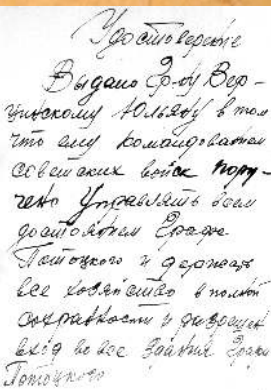 Удостоверение
Выдано Гр-ну Вер-
цинскому Юльяну в том
что ему командованием
советских войск пору-
чено Управлять всем
достоянием Графа
Потоцкого и держать
все хозяйство в полной
сохранности и разрешен
вход во все здания Графа
Потоцкого